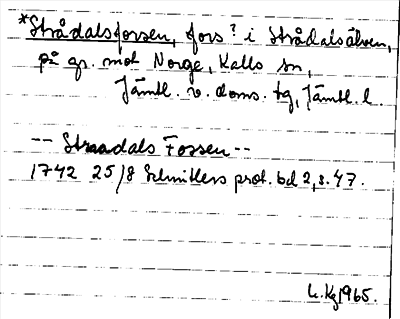 *Strådalsforsen, fors? i Strådalsälven,
på gr. mot Norge, Kalls sn,
Jämtl. v. doms. tg, Jämtl. l.
-- Straadals Fossen --
1742 25/8 Schnitlers prot. bd 2, s. 47.
1965.